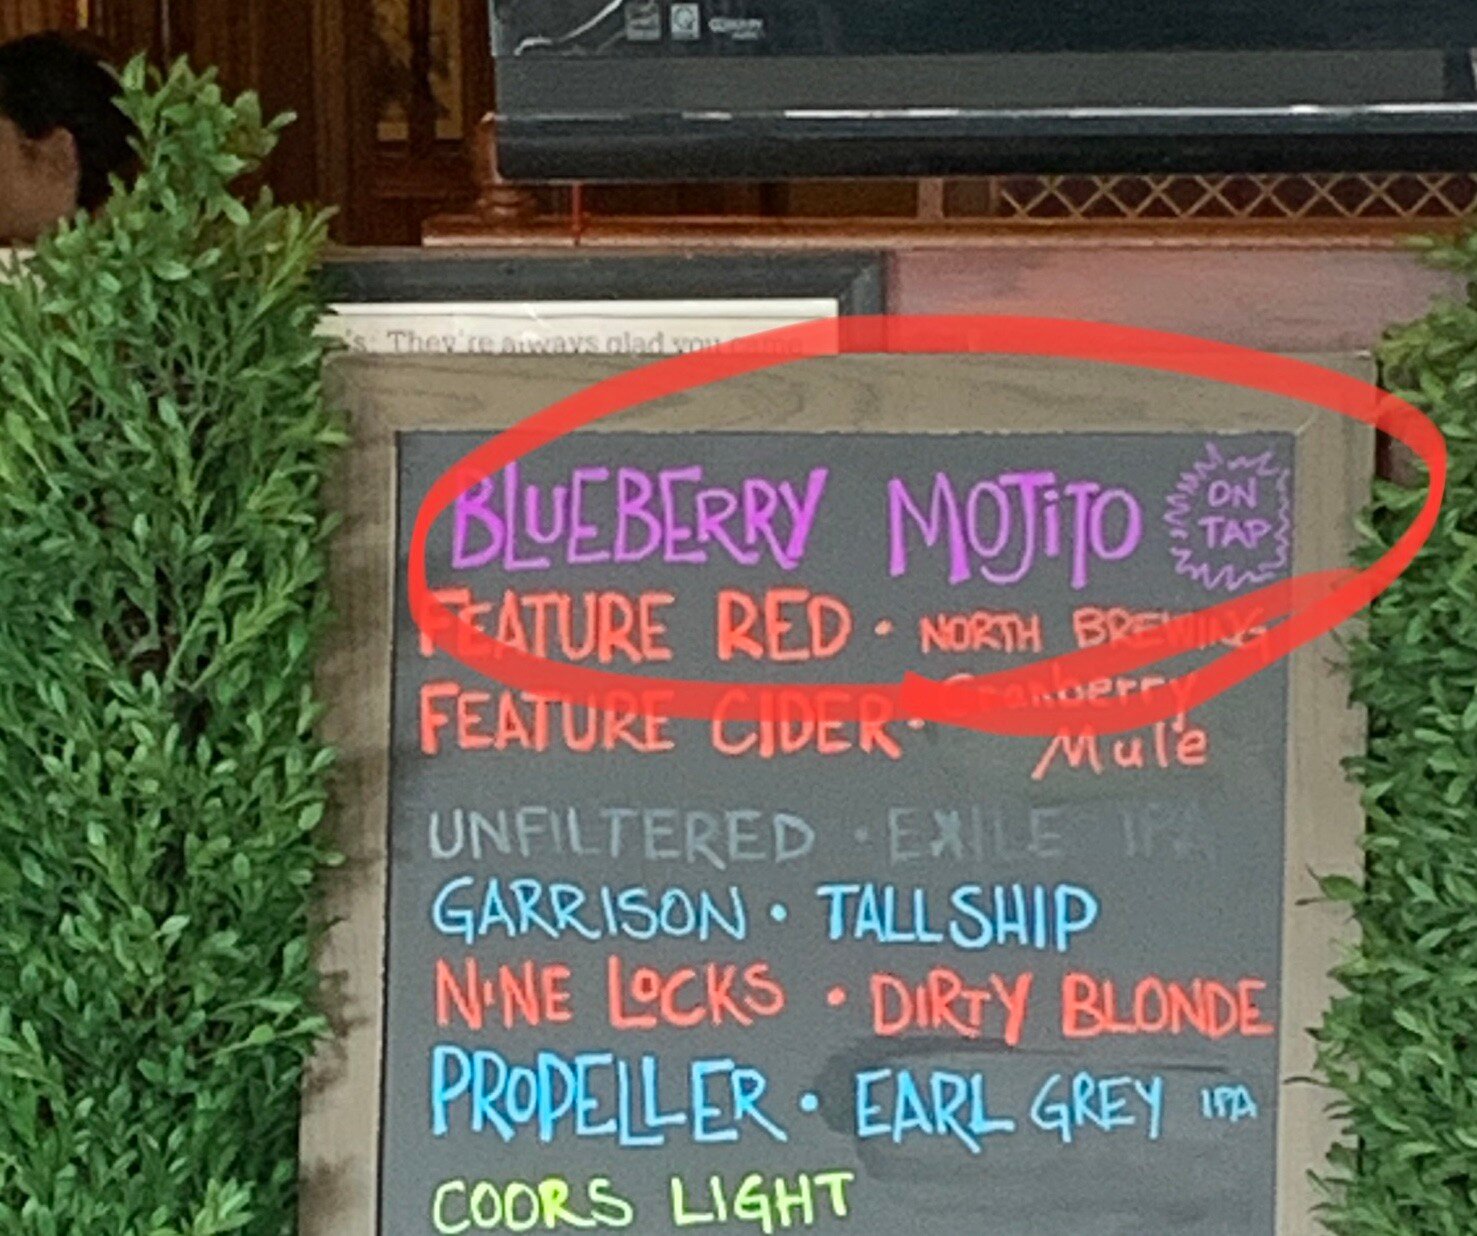 's. They're always glad you came
BLUEBERRY MOJITO ON TAP
FEATURE RED · NORTH BREWING
FEATURE CIDER · Cranberry Mule
UNFILTERED · EXILE IPA
GARRISON · TALLSHIP
NINE LOCKS · DIRTY BLONDE
PROPELLER · EARL GREY IPA
COORS LIGHT